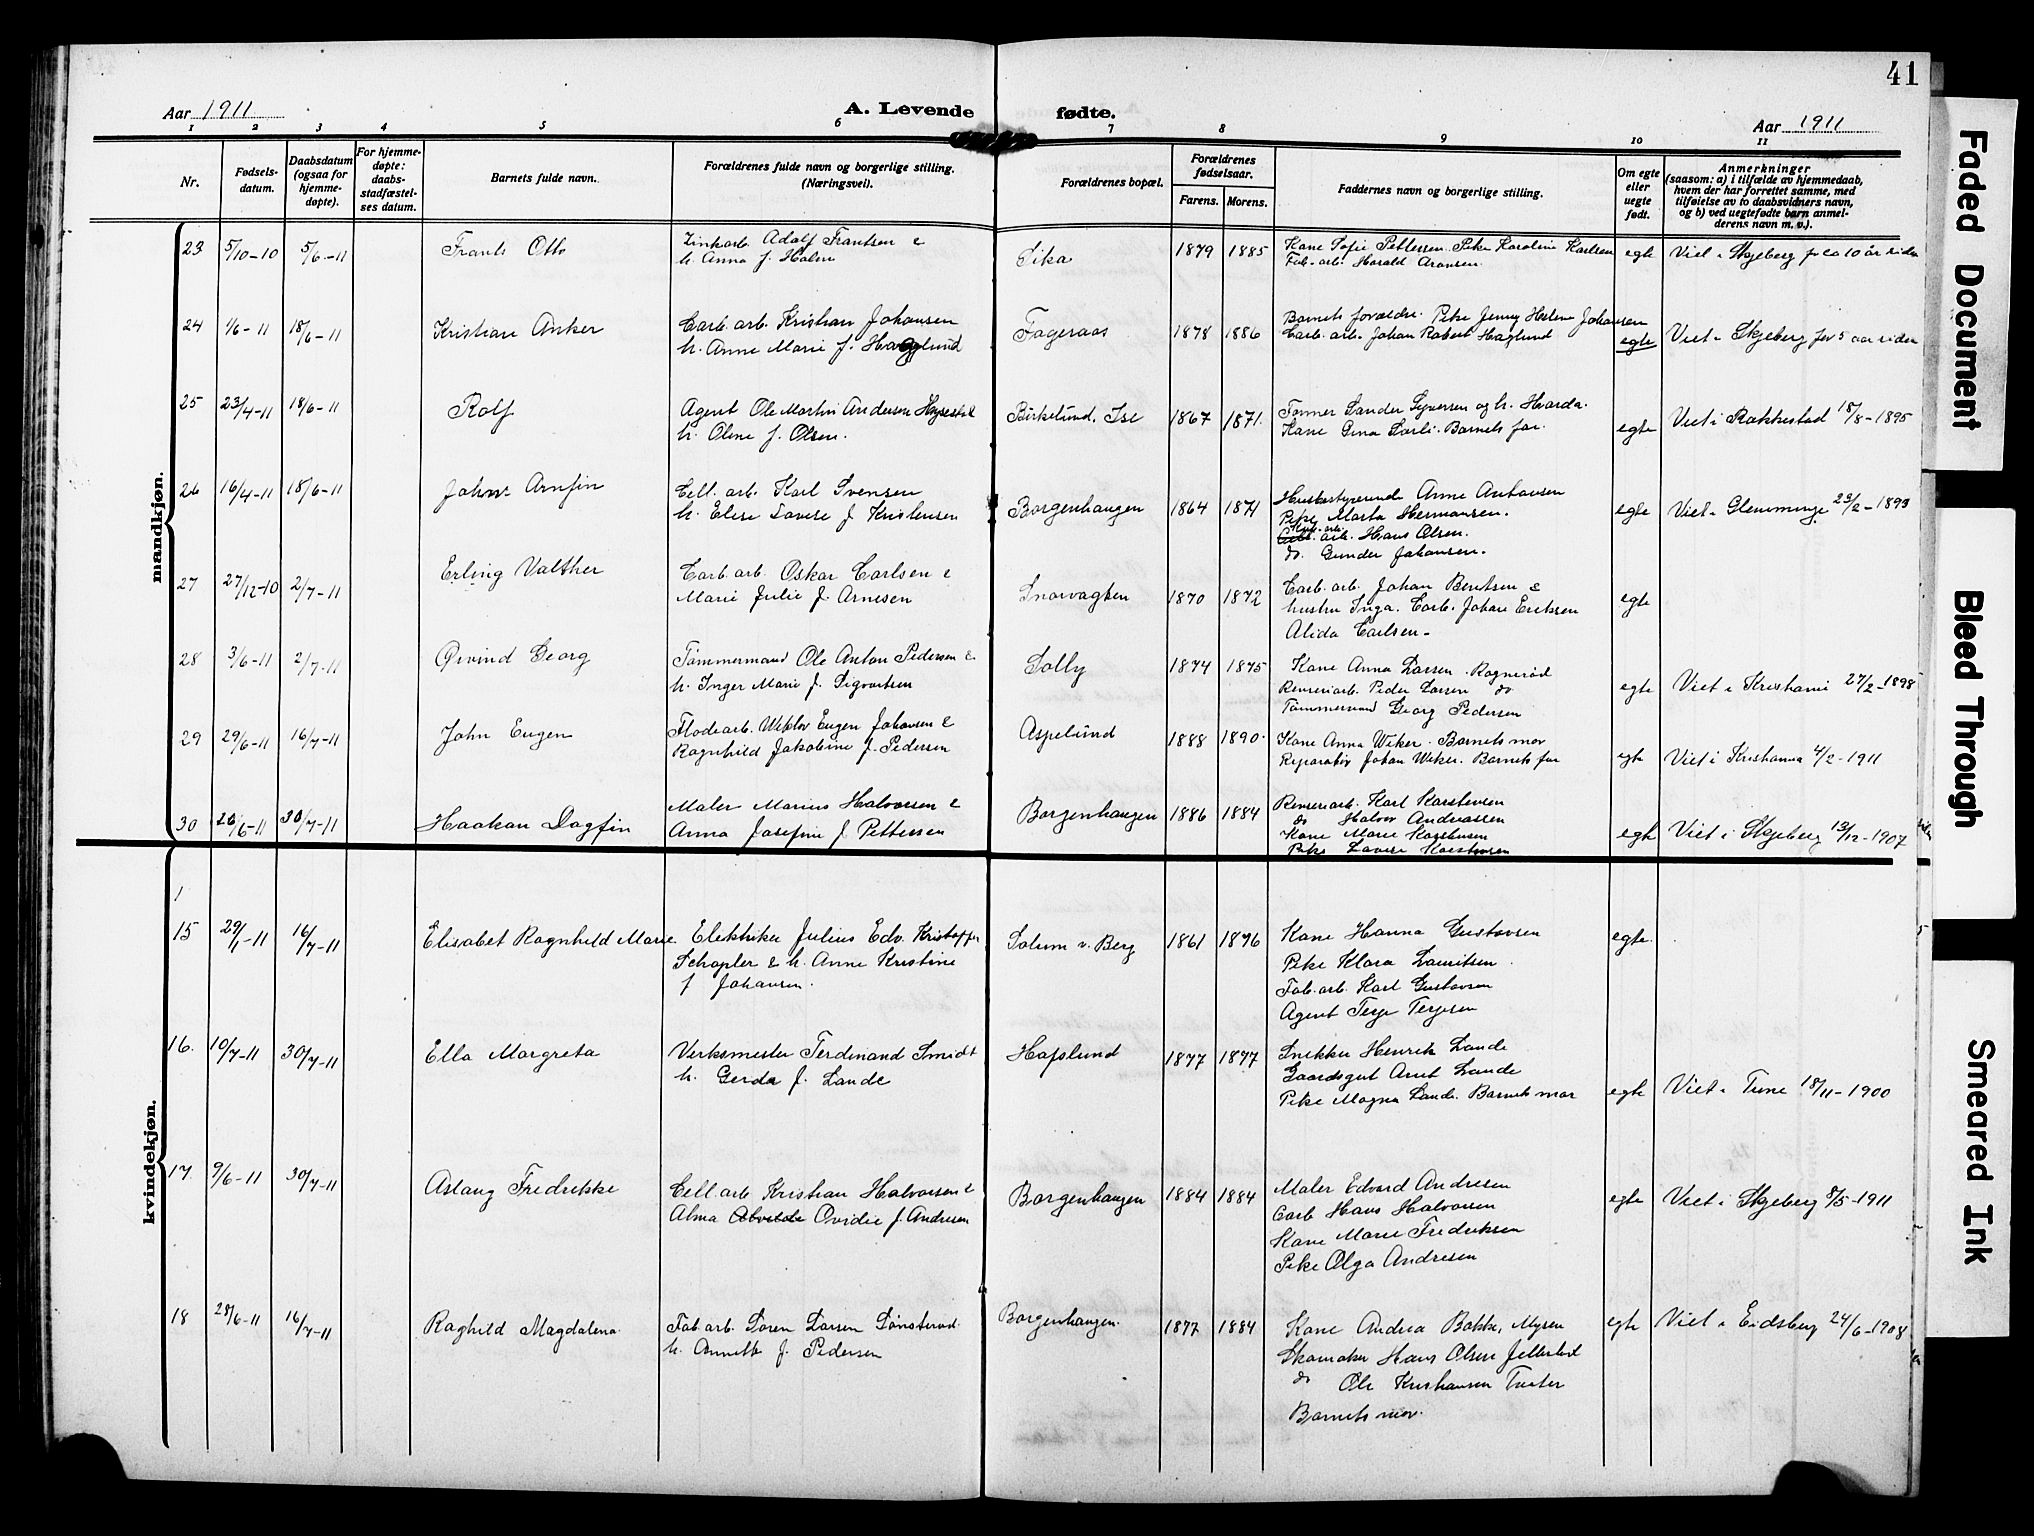 41
Aar 1911
A. Levende fødte.
Aar 1911
1 2 3 4 5 6 7 8 9 10 11
Nr.
Fødsels-
datum.
Daabsdatum
(ogsaa for
hjemme-
døpte).
For hjemme-
døpte:
daabs-
stadfæstel-
ses datum.
Barnets fulde navn.
Forældrenes fulde navn og borgerlige stilling.
(Næringsvei).
Forældrenes bopæl.
Forældrenes
fødselsaar.
Farens. Morens.
Faddernes navn og borgerlige stilling.
Om egte
eller
uegte
født.
Anmerkninger
(saasom: a) i tilfælde av hjemmedaab,
hvem der har forrettet samme, med
tilføielse av to daabsvidners navn,
og b) ved uegtefødte barn anmel-
derens navn m. v.).
mandkjøn.
23 5/10-10 5/6-11 Frants Otto
Zinkarb. Adolf Frantsen &
h. Anna f. Holm
Sika 1879 1885
Kone Sofie Pettersen. Pike Karoline Karlsen
Fab-arb. Harald Aronsen
egte Viet i Skjeberg for ca 10 år siden
24 1/6-11 18/6-11 Kristian Anker
Carb. arb. Kristian Johansen
h. Anne Marie f. Haglund
Fageraas 1878 1886
Barnets forældre. Pike Jenny Helene Johansen
Carb. arb. Johan Robert Haglund
egte Viet i Skjeberg for 5 aar siden
25 23/4-11 18/6-11 Rolf
Agent Ole Martin Andersen
h. Oline f. Olsen.
Birkelund. Ise 1867 1871.
Former Sander Syversen og h. Hvarda.
Kone Gina Sarli. Barnets far.
egte Viet i Rakkestad 18/8-1895
26 16/4-11 18/6-11 John Arnfin
Cell. arb. Karl Svensen
h. Elise Lovise f. Kristensen
Borgenhaugen 1864 1871
Husbestyrerinde Anne Anthonsen
Pike Marta Hermansen.
arb. Hans Olsen.
do. Gunder Johansen.
egte Viet i Glemminge 23/2-1893
27 27/12-10 2/7-11 Erling Valther
Carb. arb. Oskar Carlsen &
Marie Julie f. Arnesen
1870 1872
Carb. arb. Johan Bentsen &
hustru Inga. Carb. Johan Eriksen
Alida Carlsen-
egte
28 3/6-11 2/7-11 Øivind Georg
Tømmermand Ole Anton Pedersen &
h. Inger Marie f. Sigvartsen
Solly 1874 1875
Kone Anna Larsen. Rognerød
Renseriarb. Peder Larsen do
Tømmermand Georg Pedersen
egte Viet i Kristiania 27/2-1898
29 29/6-11 16/7-11 John Eugen
Flodearb. Wiktor Eugen Johansen &
Ragnhild Jakobine f. Pedersen
Aspelund 1888 1890.
Kone Anna Wiker. Barnets mor
Reparatør Johan Wiker. Barnets far
egte Viet i Kristiania 4/2-1911
30 20/6-11 30/7-11 Haakon Dagfin
Maler Marius Halvorsen &
Anna Josefine f. Pettersen
Borgenhaugen 1886 1884
Renseriarb. Karl Karstensen
do Halvor Andreassen
Kone Marie Karstensen
Pike Lovise Karstensen
egte Viet i Skjeberg 13/12-1907
kvindekjøn.
1
15 29/1-11 16/7-11 Elisabet Ragnhild Marie
Elektriker Julius Edv. Kristoffer
Schopler & h. Anne Kristine
f Johansen.
Solum v. Berg 1861 1896
Kone Hanna Gustavsen
Pike Klara Lauritsen.
Fab. arb. Karl Gustavsen
Agent Terje Terjesen
egte.
16. 10/7-11 30/7-11 Ella Margreta
Verksmester Ferdinand Smidt
h. Gerda f. Lande
Hafslund 1877 1877
Snikker Henrik Lande
Gaardsgut Arnt Lande
Pike Magna Lande. Barnets mor
egte Viet i Tune 18/11-1900
17. 9/6-11 30/7-11 Aslaug Fredrikke
Cell. arb. Kristian Halvorsen &
Alma Ovidie f. Andresen
Borgenhaugen 1884 1884
Maler Edvard Andresen
Carb Hans Halvorsen
Kone Marie Fredriksen
Pike Olga Andresen
egte Viet i Skjeberg 8/5-1911
18 28/6-11 16/7-11 Raghild Magdalena
Fab. arb. Søren Larsen Sønsterød.
h. Annette f. Pedersen
Borgenhaugen. 1877 1884
Kone Andrea Bakke, Mysen
Skomaker Hans Olsen
do Ole Kristiansen
Barnets mor.
egte Viet i Eidsberg 24/6-1908
Faded Document
Bleed Through
Smeared Ink